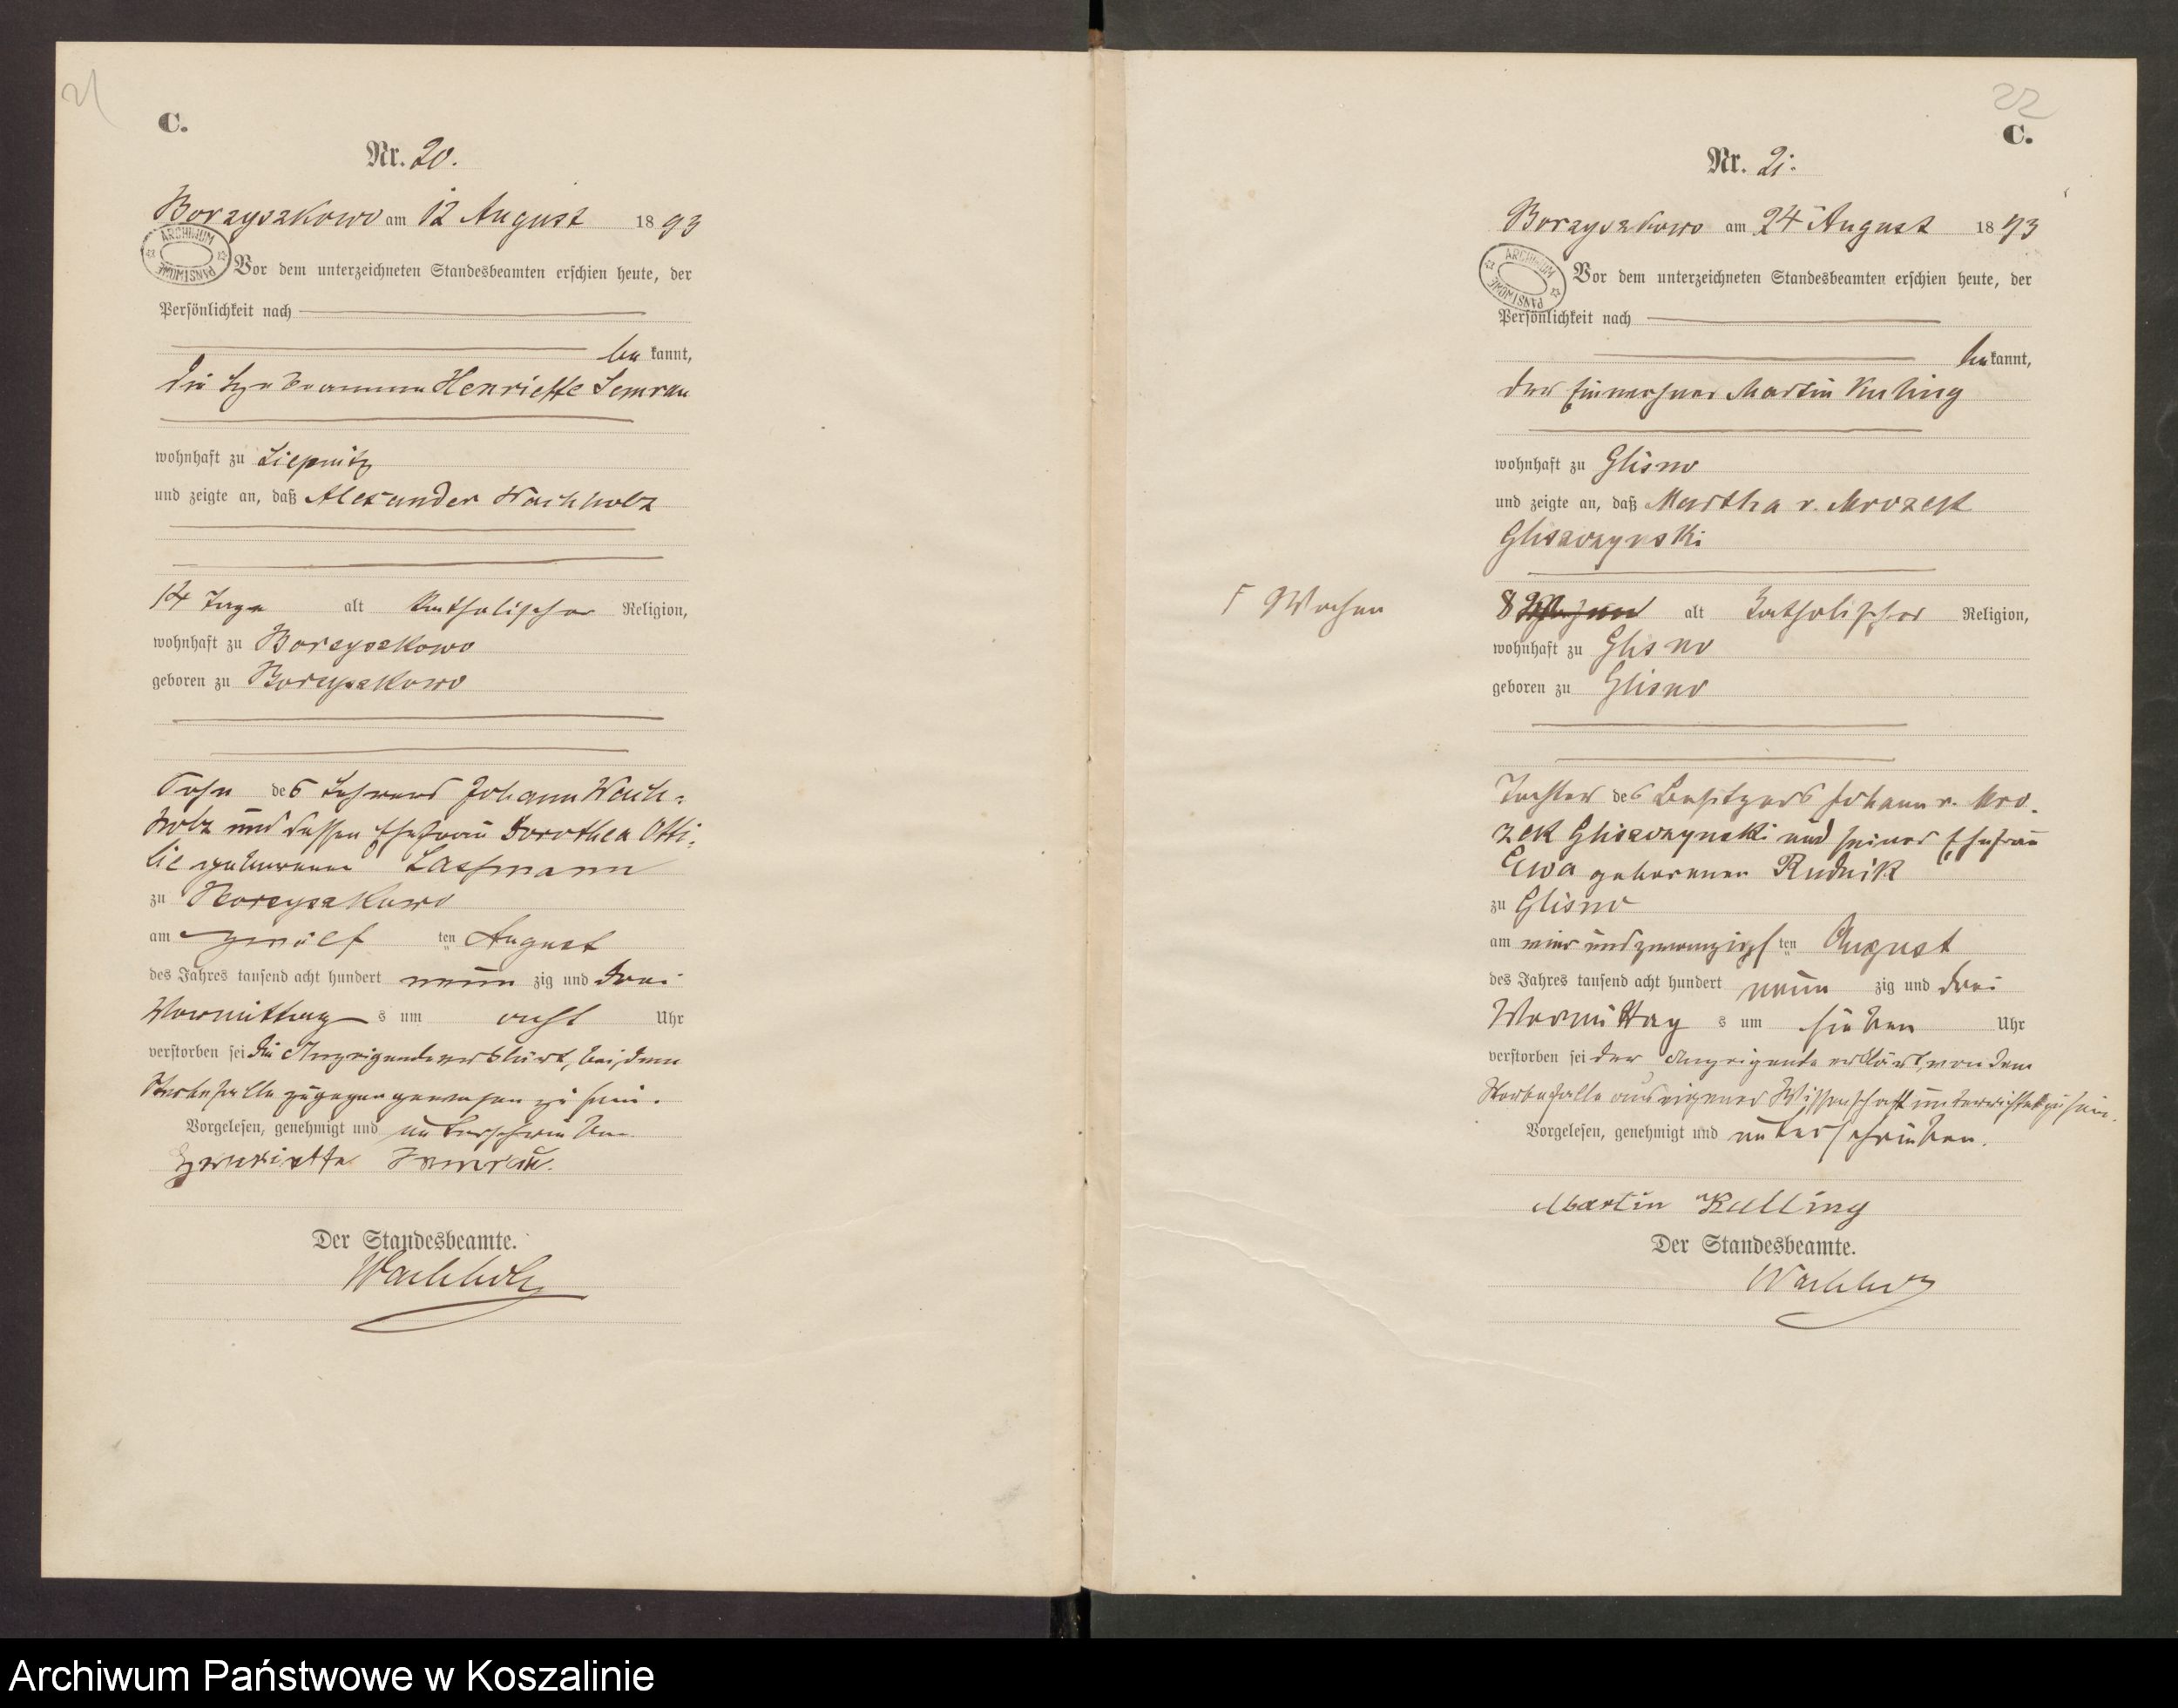 21
C.
Nr. 20.
Borzyszkowo am 12 August 1893
ARCHIWUM PAŃSTWOWE
Vor dem unterzeichneten Standesbeamten erschien heute, der
Persönlichkeit nach
be kannt,
die Hebeamme Henriette Semrau
wohnhaft zu Liepnitz
und zeigte an, daß Alexander Wachholz
14 Tage alt katholischer Religion,
wohnhaft zu Borzyszkowo
geboren zu Borzyszkowo
Sohn des Lehrers Johann Wach-
holz und dessen Ehefrau Dorothea Otti-
lie geborenen
zu Borzyszkowo
am zwölf ten August
des Jahres tausend acht hundert neun zig und drei
Vormittag s um acht Uhr
verstorben sei die Anzeigende erklärt, bei dem
Sterbefalle zugegen gewesen zu sein.
Vorgelesen, genehmigt und unterschrieben
Henriette Semrau.
Der Standesbeamte.
Wachholz
22
C.
Nr. 21.
Borzyszkowo am 24 August 1893
ARCHIWUM PAŃSTWOWE
Vor dem unterzeichneten Standesbeamten erschien heute, der
Persönlichkeit nach
be kannt,
der Einwohner Martin Kuling
wohnhaft zu Glisno
und zeigte an, daß Martha v. Mrozek
Glisczynski
Wochen
8 alt katholischer Religion,
wohnhaft zu Glisno
geboren zu Glisno
Tochter des Besitzers Johann v. Mro-
zek Glisczynski und seiner Ehefrau
Ewa geborenen Rudnik
zu Glisno
am vier und zwanzigs ten August
des Jahres tausend acht hundert neun zig und drei
Vormittag s um sieben Uhr
verstorben sei der Anzeigende erklärt, von dem
Sterbefalle aus eigener Wissenschaft unterrichtet zu sein.
Vorgelesen, genehmigt und unterschrieben.
Martin Kulling
Der Standesbeamte.
Wachholz
Archiwum Państwowe w Koszalinie